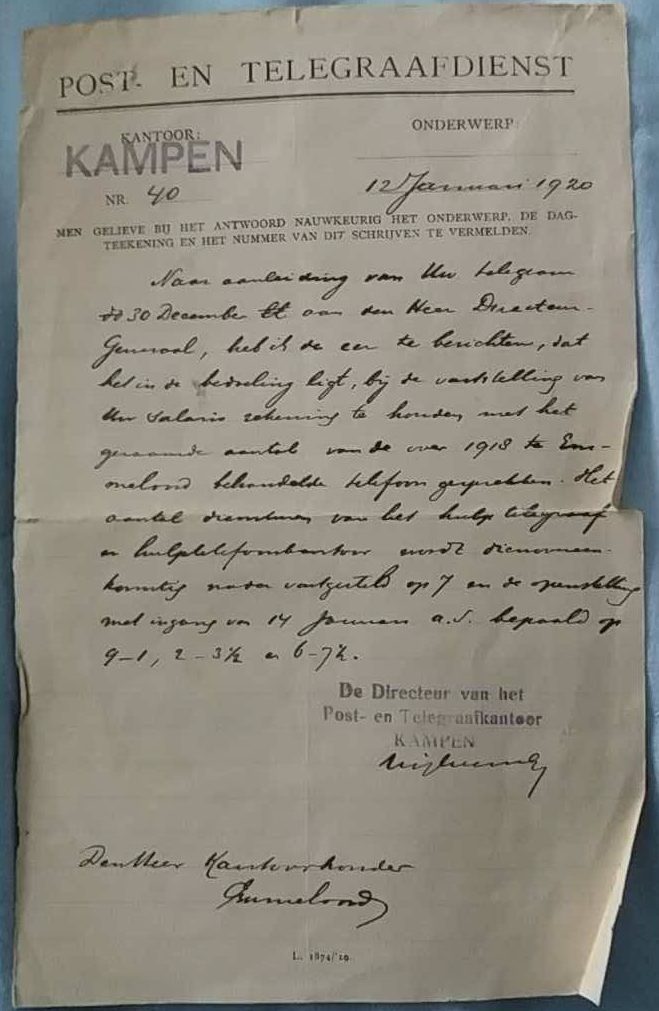 POST- EN TELEGRAAFDIENST
KANTOOR:
ONDERWERP:
KAMPEN
NR. 40
12 Januari 1920
MEN GELIEVE BIJ HET ANTWOORD NAUWKEURIG HET ONDERWERP, DE DAG-
TEEKENING EN HET NUMMER VAN DIT SCHRIJVEN TE VERMELDEN.
Naar aanleiding van Uw telegram
dd 30 December ll aan den Heer Directeur-
Generaal, heb ik de eer te berichten, dat
het in de bedoeling ligt, bij de vaststelling van
Uw salaris rekening te houden met het
geraamde aantal van de over 1918 te Em-
meloord behandelde telefoongesprekken. Het
aantal diensturen van het hulptelegraaf
en hulptelefoonkantoor wordt dienovereen-
komstig nader vastgesteld op 7 en de openstelling
met ingang van 14 Januari a.s. bepaald op
9-1, 2-3½ en 6-7½.
De Directeur van het
Post- en Telegraafkantoor
KAMPEN
Den Heer Kantoorhouder
Emmeloord
L. 1874/'19.